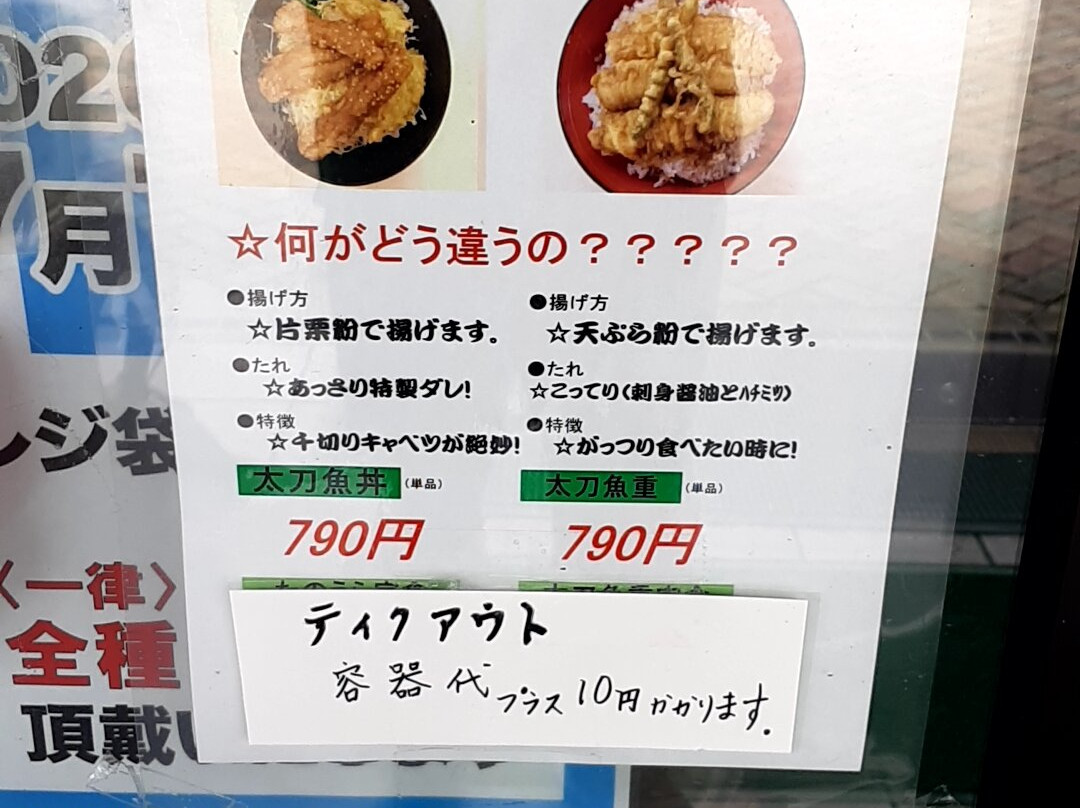 ☆何がどう違うの？？？？？
●揚げ方
☆片栗粉で揚げます。
●たれ
☆あっさり特製ダレ!
●特徴
☆千切りキャベツが絶妙!
太刀魚丼(単品)
790円
●揚げ方
☆天ぷら粉で揚げます。
●たれ
☆こってり(刺身醤油とﾊﾁﾐﾂ)
●特徴
☆がっつり食べたい時に!
太刀魚重(単品)
790円
ティクアウト
容器代プラス10円かかります.
月
レジ袋
〈一律〉
全種
頂戴